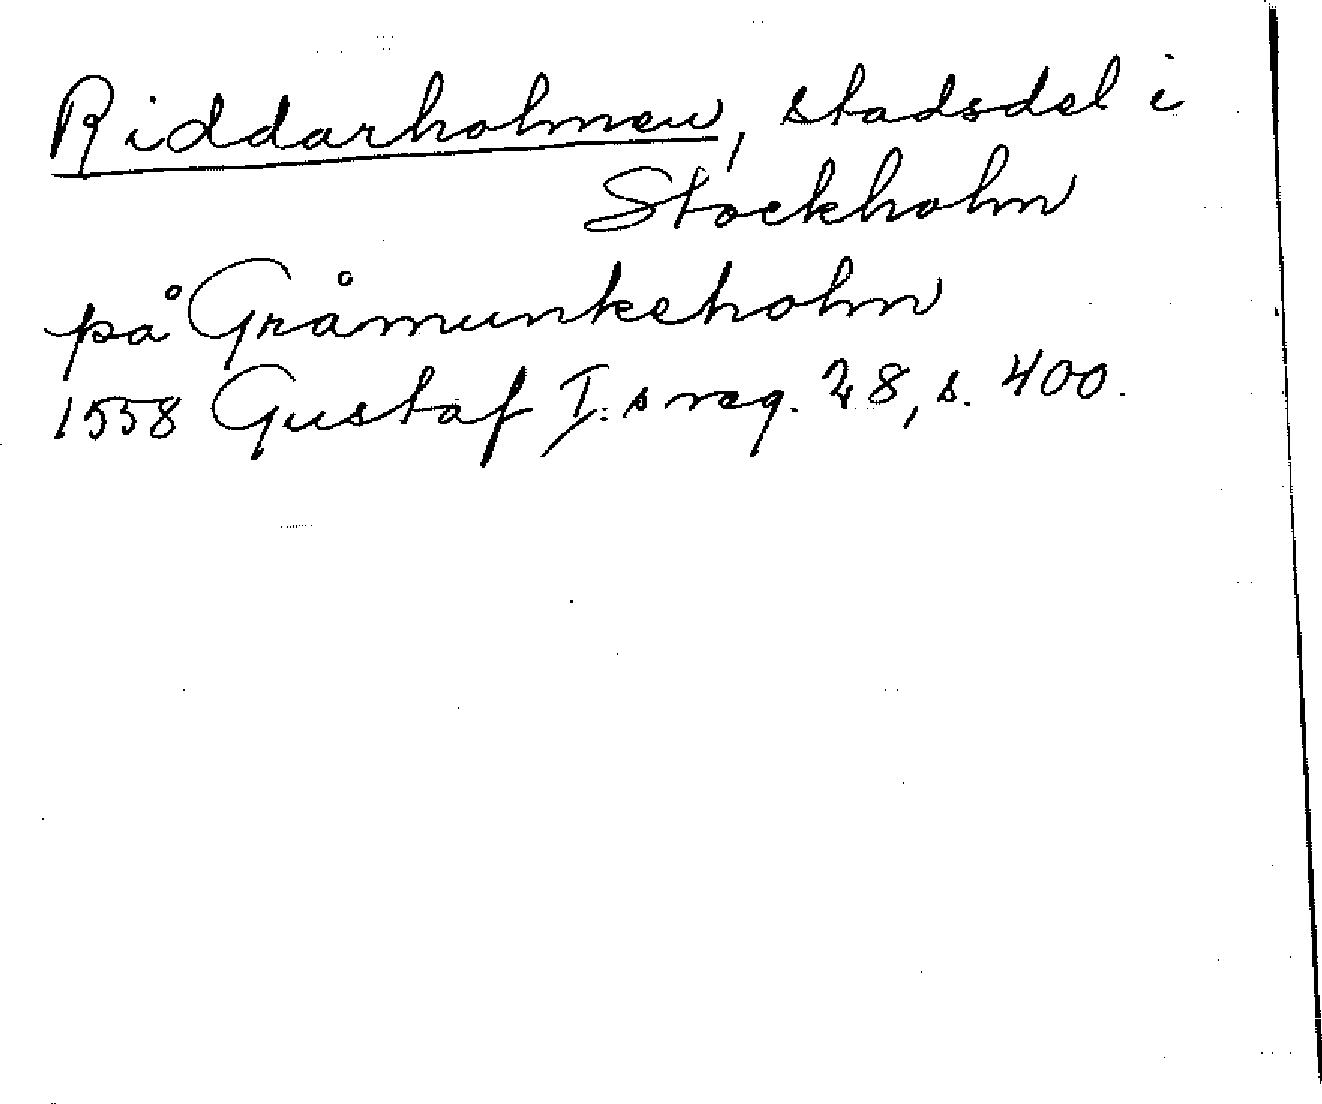 Riddarholmen, stadsdel i
Stockholm
på Gråmunkeholm
1558 Gustaf I:s reg. 28, s. 400.